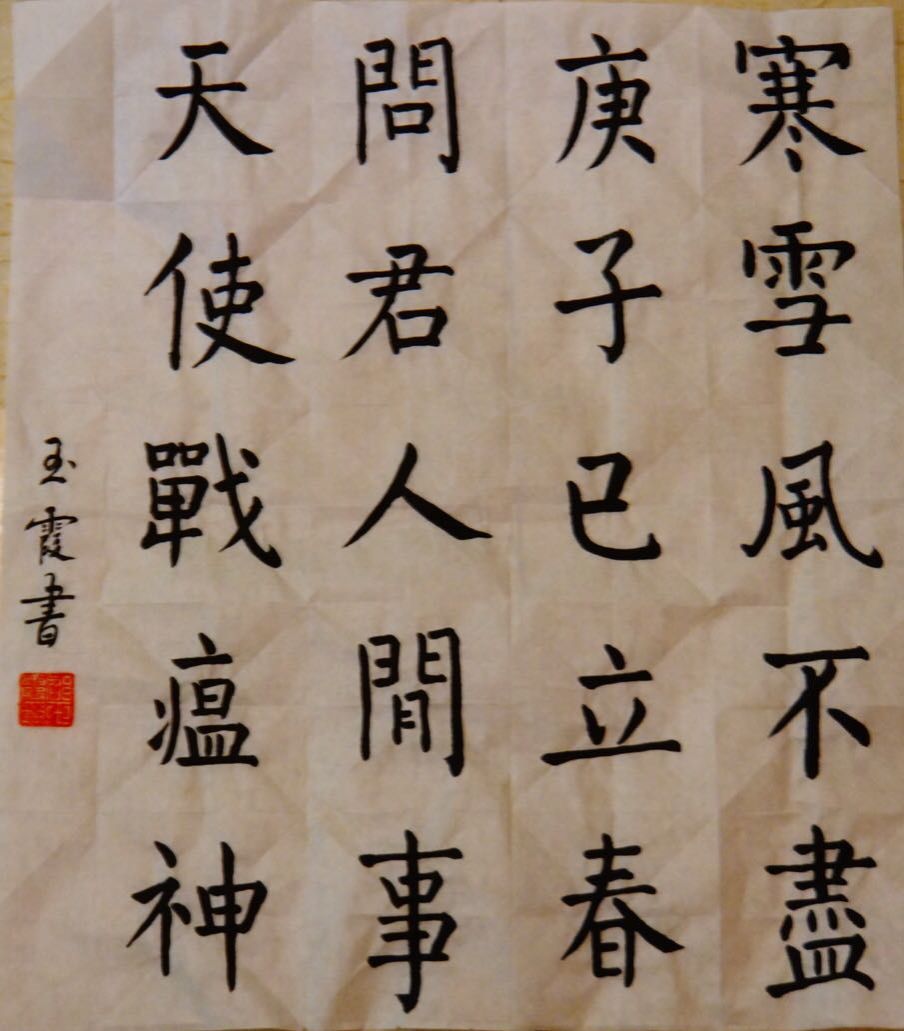 寒雪風不盡
庚子已立春
問君人間事
天使戰瘟神
玉霞書